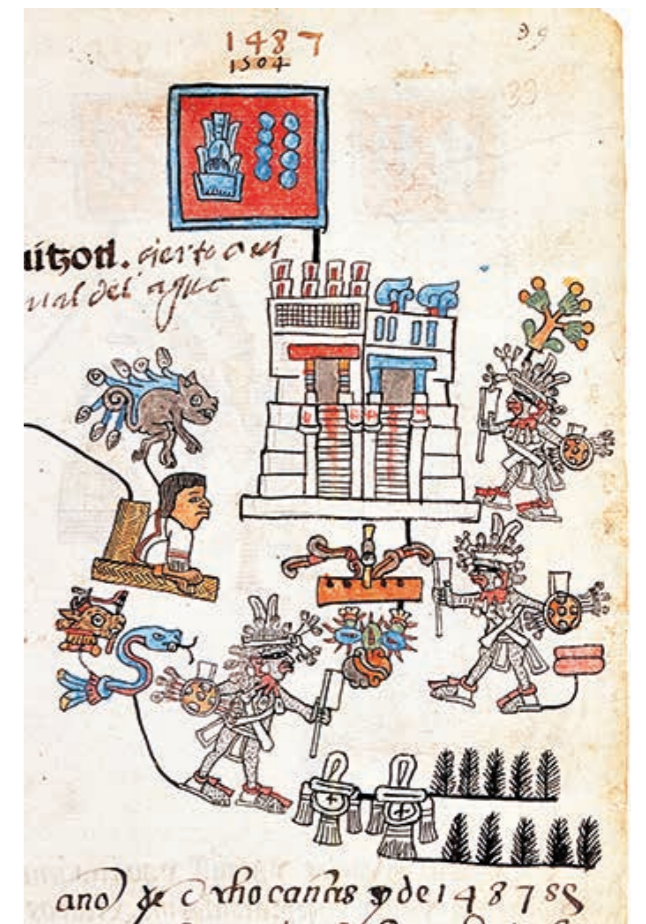 39
1487
1504
39
uitzotl. cierto
del agua
ano de ocho cañas y de 1487 ss